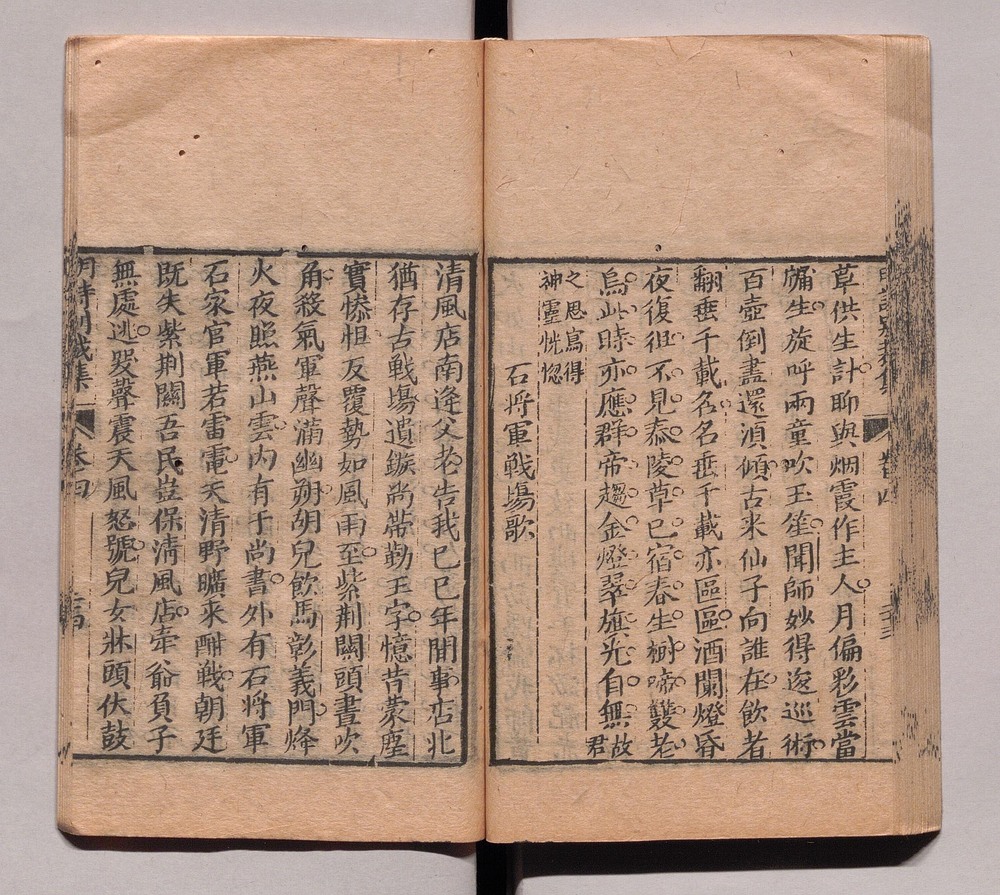 草供生計聊與烟霞作主人月偏彩雲當
牖生旋呼兩童吹玉笙聞師妙得逡巡術
百壺倒盡還湏傾古来仙子向誰在飲者
翻垂千載名名垂千載亦區區酒闌燈昏
夜復徂不見泰陵草已宿春生樹啼雙老
烏此時亦應群帝趨金燈翠旗光自無故君
之思寫得
神靈恍惚
石将軍戦塲歌
清風店南逢父老告我己巳年間事店北
猶存古戦塲遺鏃尚帶勤王字憶昔蒙塵
實慘怛反覆勢如風雨至紫荆關頭晝吹
角殺氣軍聲滿幽朔胡兒飲馬彰義門烽
火夜照燕山雲内有于尚書外有石将軍
石家官軍若雷電天清野曠来酣戦朝廷
既失紫荆關吾民豈保清風店牽爺負子
無處逃哭聲震天風怒號兒女牀頭伏鼓
明詩別裁集 卷四